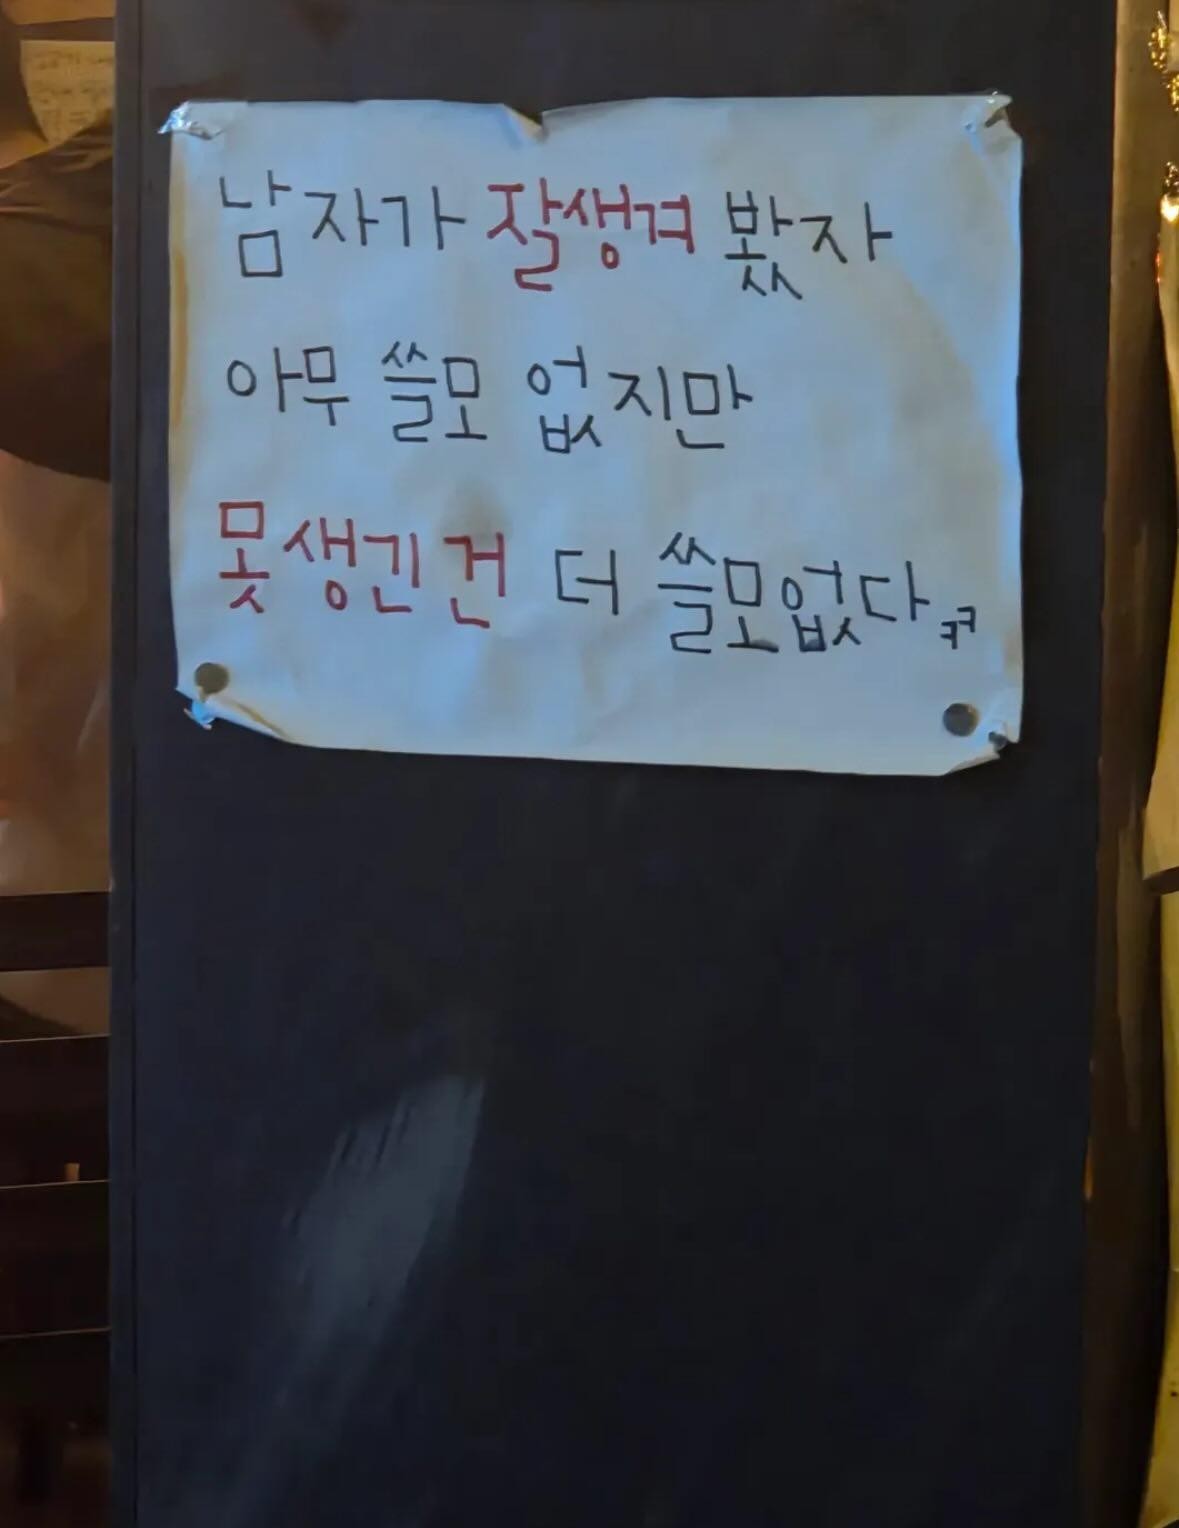 남자가 잘생겨 봤자
아무 쓸모 없지만
못생긴건 더 쓸모없다ㅋㅋ